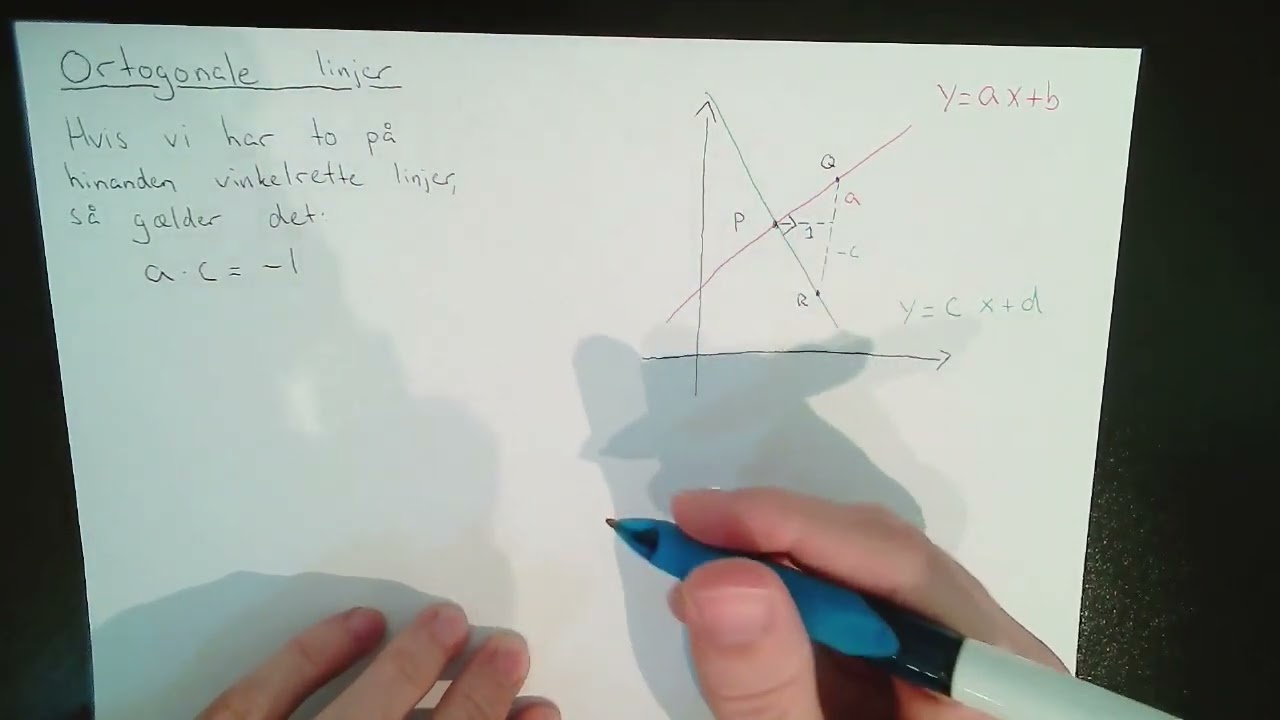 Ortogonale linjer
Hvis vi har to på
hinanden vinkelrette linjer,
så gælder det:
a · c = -1
y = ax+b
Q
a
P
1
-c
R
y = c x+d